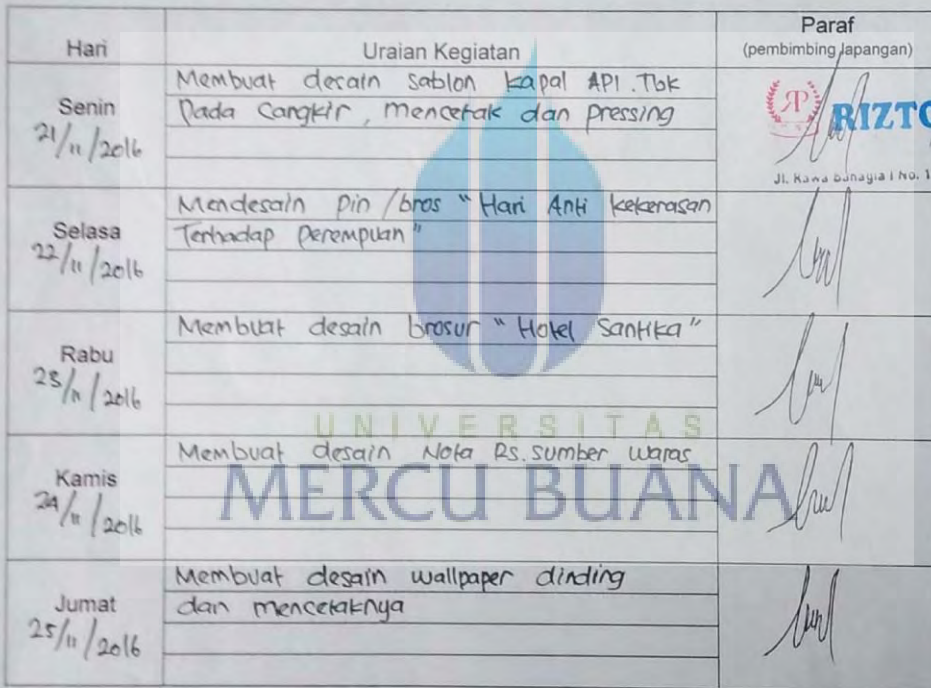 Hari
Uraian Kegiatan
Paraf
(pembimbing lapangan)
Senin
21/11/2016
Membuat desain sablon kapal API.Tbk
Pada Cangkir, mencetak dan pressing
RIZTO
Jl.
No. 1
Selasa
22/11/2016
Mendesain pin/bros "Hari Anti kekerasan
Terhadap Perempuan"
Rabu
23/11/2016
Membuat desain brosur "Hotel Santika"
UNIVERSITAS
MERCU BUANA
Kamis
24/11/2016
Membuat desain Nota Rs. sumber waras
Jumat
25/11/2016
Membuat desain wallpaper dinding
dan mencetaknya